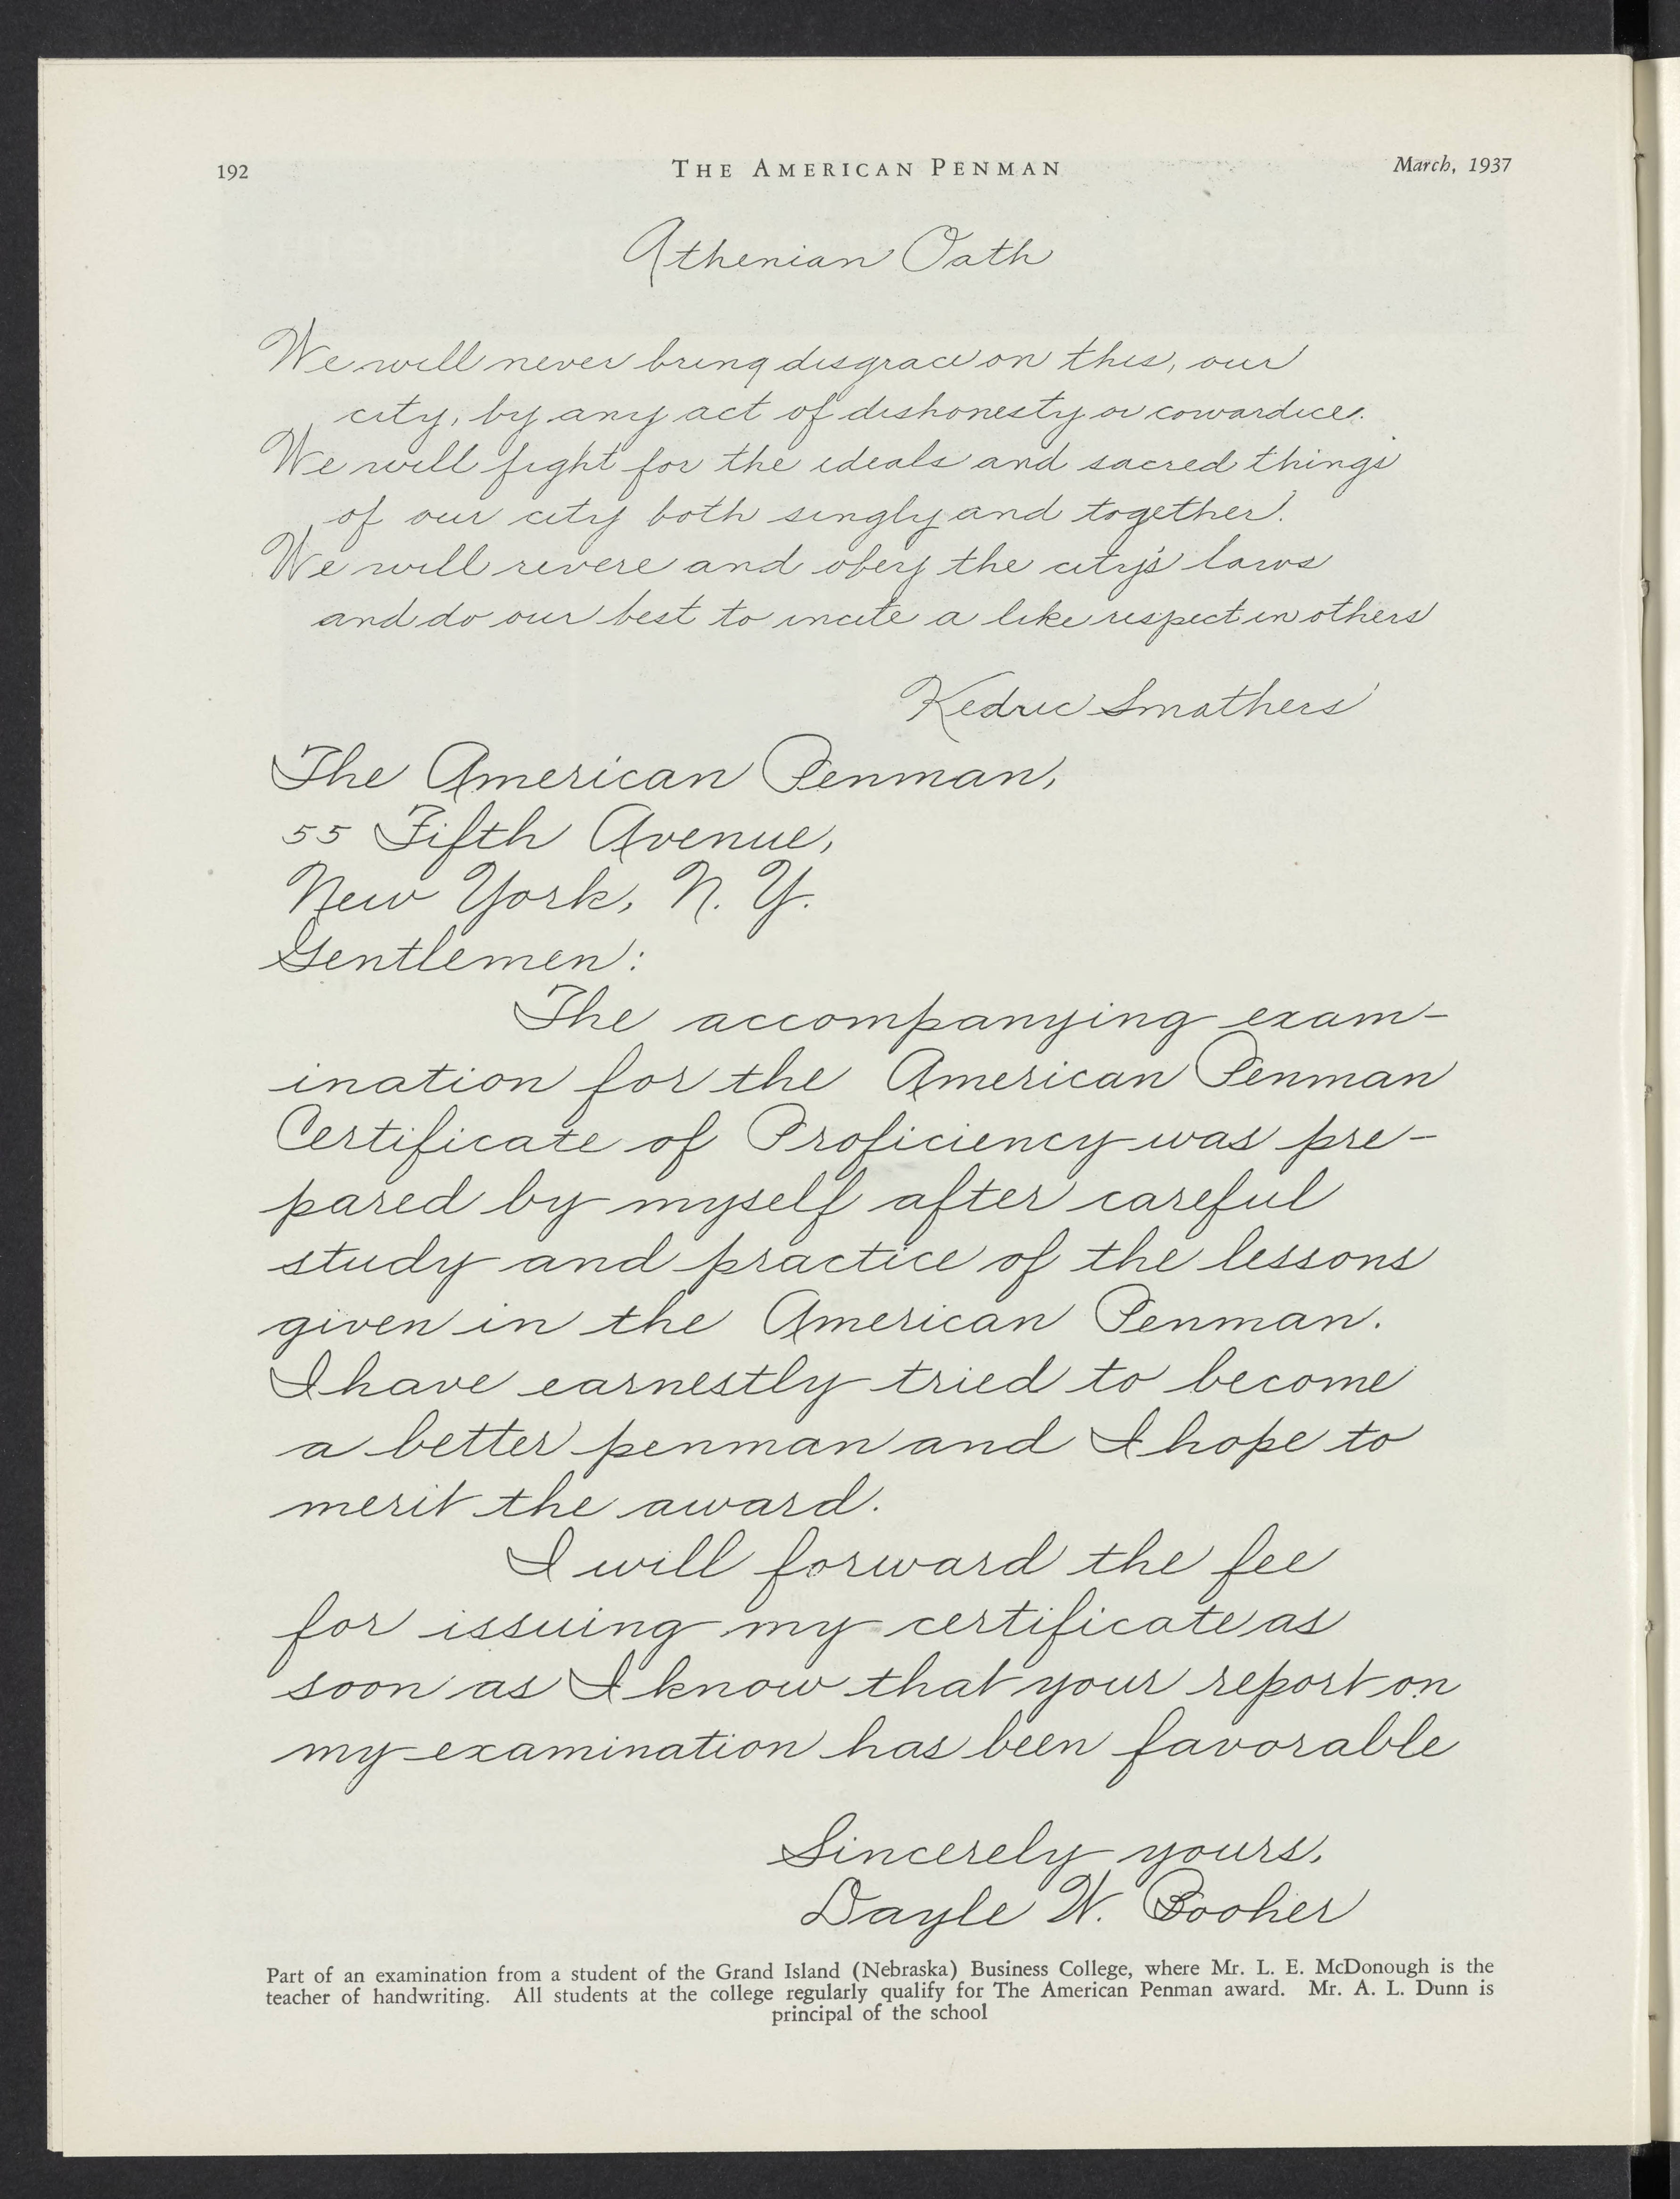 192 THE AMERICAN PENMAN March, 1937
Athenian Oath
We will never bring disgrace on this, our
city, by any act of dishonesty or cowardice.
We will fight for the ideals and sacred things
of our city both singly and together.
We will revere and obey the city's laws
and do our best to incite a like respect in others
Kedric Smathers
The American Penman,
55 Fifth Avenue,
New York, N. Y.
Gentlemen:
The accompanying exam-
ination for the American Penman
Certificate of Proficiency was pre-
pared by myself after careful
study and practice of the lessons
given in the American Penman.
I have earnestly tried to become
a better penman and I hope to
merit the award.
I will forward the fee
for issuing my certificate as
soon as I know that your report on
my examination has been favorable
Sincerely yours,
Dayle W. Booher
Part of an examination from a student of the Grand Island (Nebraska) Business College, where Mr. L. E. McDonough is the
teacher of handwriting. All students at the college regularly qualify for The American Penman award. Mr. A. L. Dunn is
principal of the school